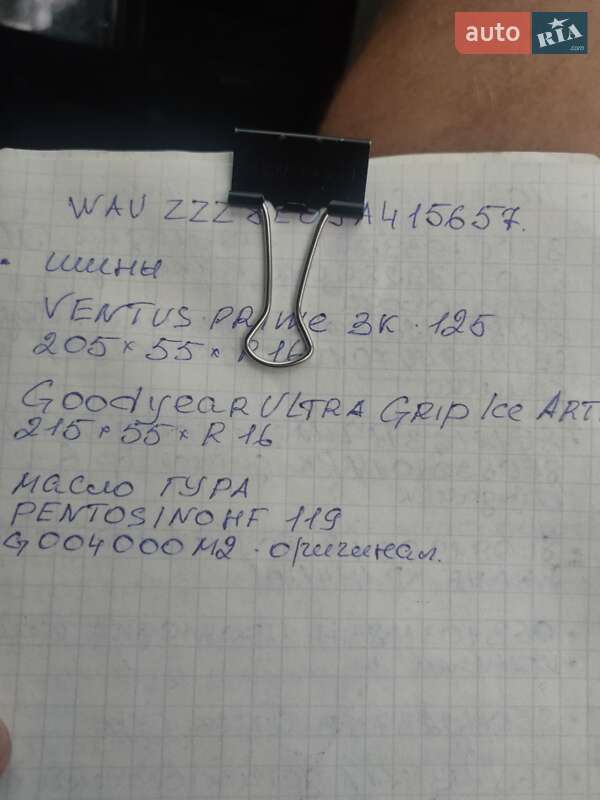 auto RIA .com
WAU ZZZ 8E65A415657.
• шины
VENTUS PRIME 3K · 125
205 × 55 × R 16
Goodyear ULTRA Grip Ice ART.
215 × 55 × R 16
масло ГУРА
PENTOSINOHF 119
G004000M2 · оригинал.